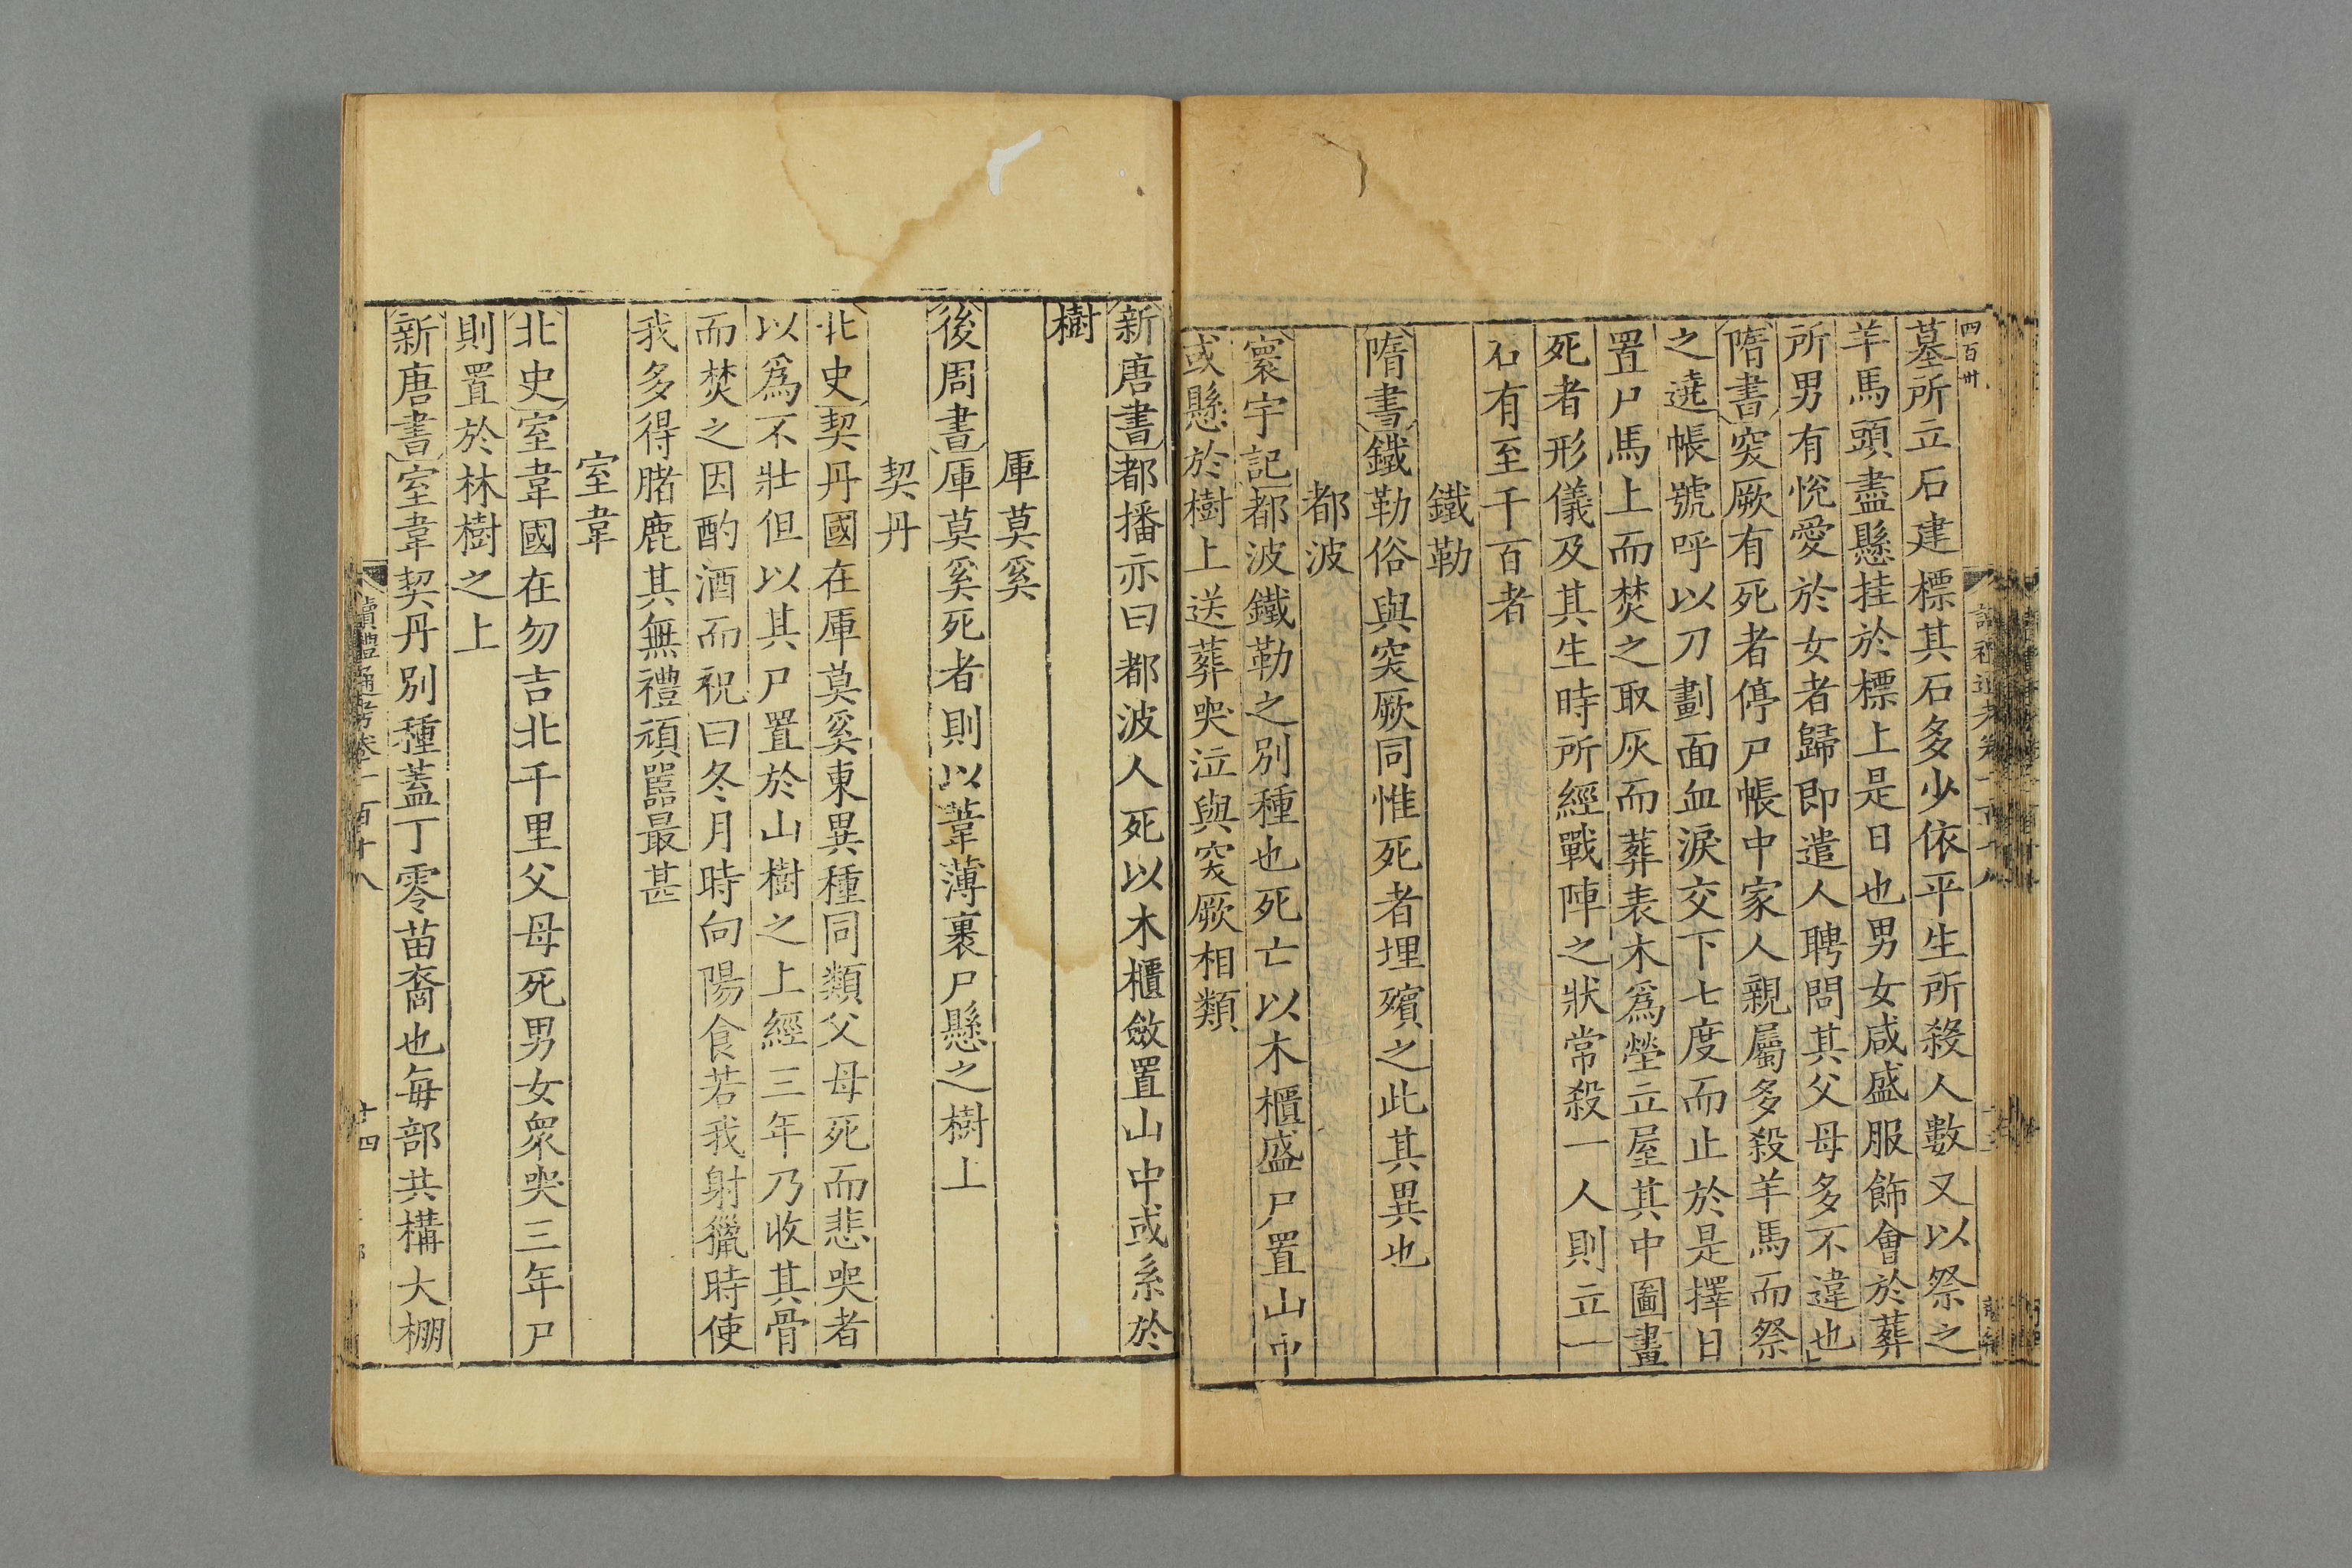 四百卅
墓所立石建標其石多少依平生所殺人數又以祭之
羊馬頭盡懸挂於標上是日也男女咸盛服飾會於葬
所男有悅愛於女者歸即遣人聘問其父母多不違也
隋書突厥有死者停尸帳中家人親屬多殺羊馬而祭
之遶帳號呼以刀劃面血淚交下七度而止於是擇日
置尸馬上而焚之取灰而葬表木爲塋立屋其中圖畫
死者形儀及其生時所經戰陣之狀常殺一人則立一
石有至千百者
鐵勒
隋書鐵勒俗與突厥同惟死者埋殯之此其異也
都波
寰宇記都波鐵勒之別種也死亡以木櫃盛尸置山中
或懸於樹上送葬哭泣與突厥相類
新唐書都播亦曰都波人死以木櫃斂置山中或系於
樹
厙莫奚
後周書厙莫奚死者則以葦薄裹尸懸之樹上
契丹
北史契丹國在厙莫奚東異種同類父母死而悲哭者
以爲不壯但以其尸置於山樹之上經三年乃收其骨
而焚之因酌酒而祝曰冬月時向陽食若我射獵時使
我多得豬鹿其無禮頑嚚最甚
室韋
北史室韋國在勿吉北千里父母死男女衆哭三年尸
則置於林樹之上
新唐書室韋契丹別種蓋丁零苗裔也每部共構大棚
讀禮通考卷一百十八
十四